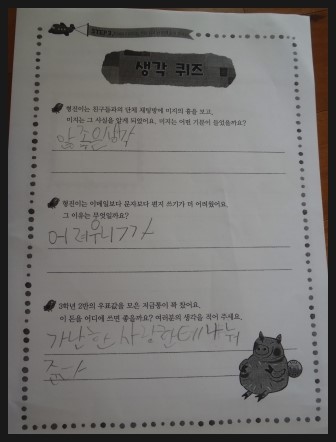 생각 퀴즈
형진이는 친구들과의 단체 채팅방에 미지의 흉을 보고,
미지는 그 사실을 알게 되었어요. 미지는 어떤 기분이 들었을까요?
안 좋은 생각
형진이는 이메일보다 문자보다 편지 쓰기가 더 어려웠어요.
그 이유는 무엇일까요?
어려우니까
3학년 2반의 우표값을 모은 저금통이 꽉 찼어요.
이 돈을 어디에 쓰면 좋을까요? 여러분의 생각을 적어 주세요.
가난한 사람한테 나눠
준다